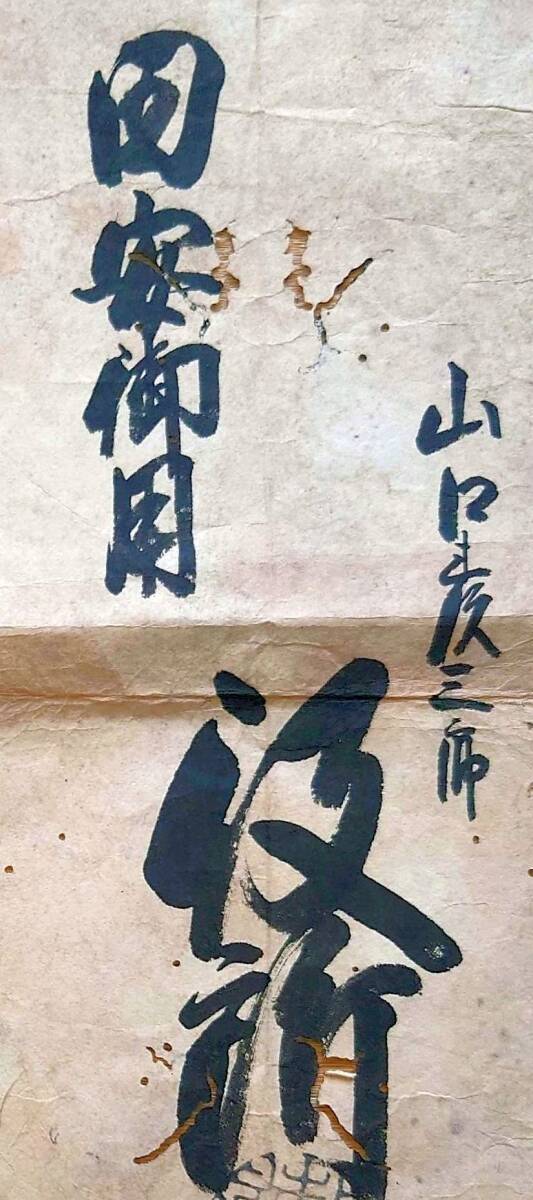 山口彦三郎
田安御用
役所